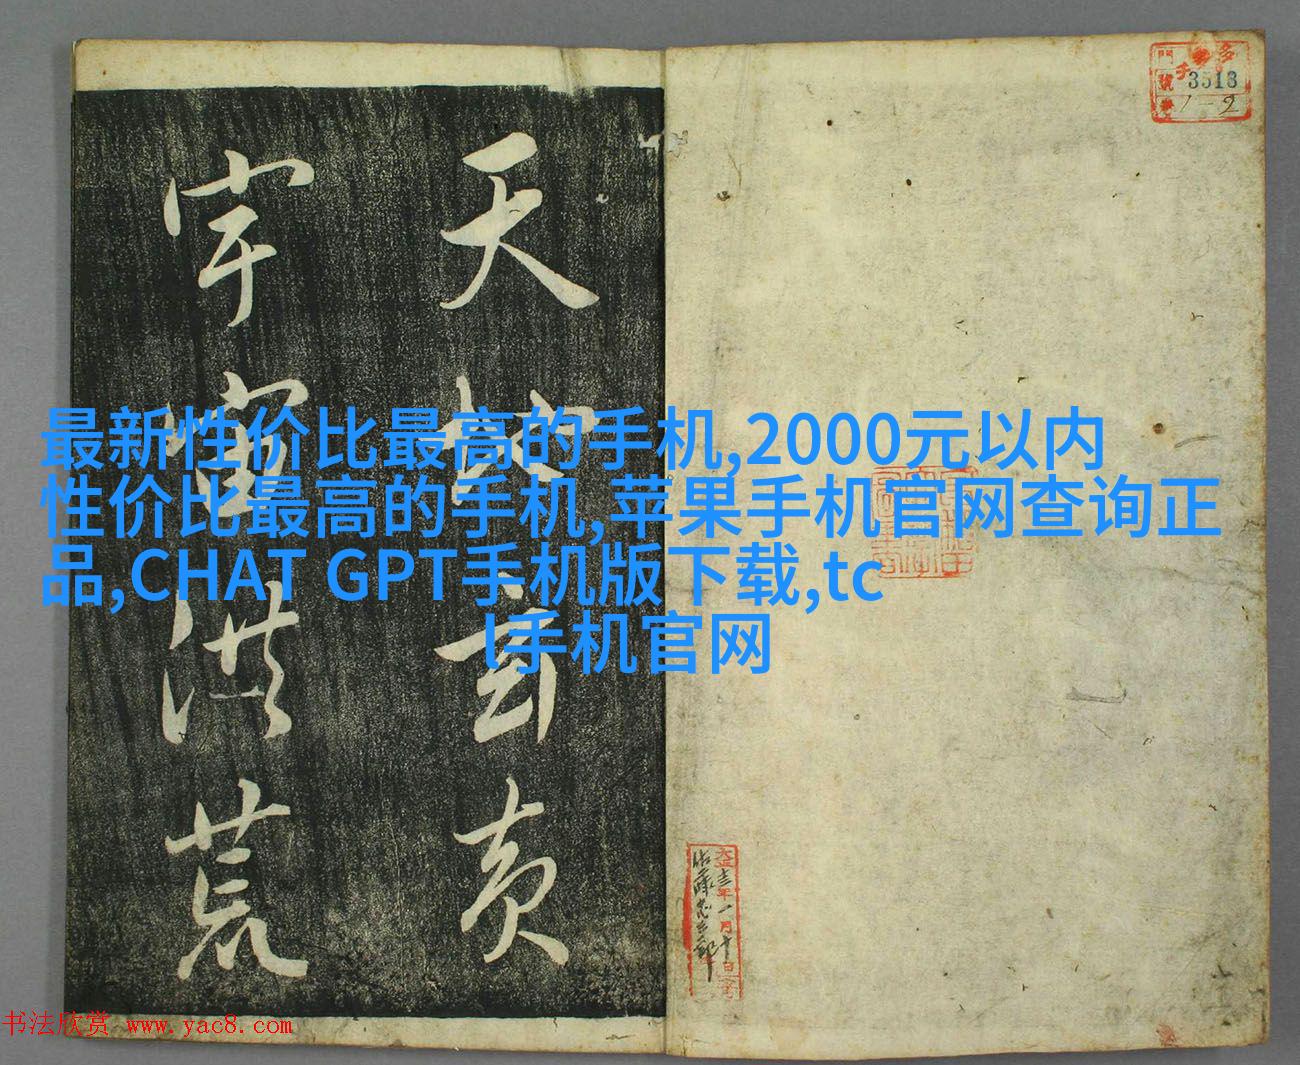 天地玄黄
宇宙洪荒
3513
1-2
最新性价比最高的手机,2000元以内
性价比最高的手机,苹果手机官网查询正
品,CHAT GPT手机版下载,tc
l手机官网
书法欣赏 www.yac8.com